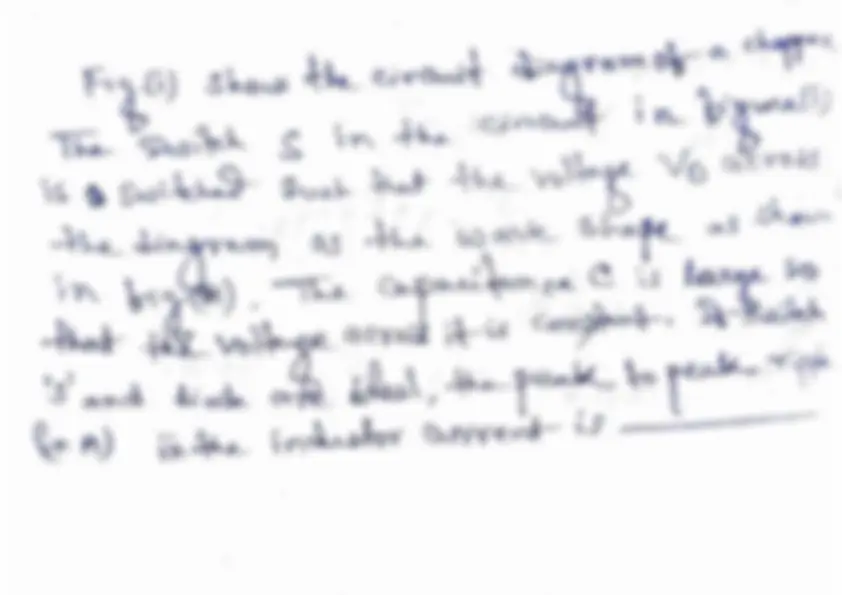 Fig (i) shows the circuit diagram of a chopper
The switch S in the circuit in figure (i)
is switched such that the voltage VD across
the diagram as the wave shape as shown
in fig (ii). The capacitance C is large so
that the voltage across it is constant. If switch
'S' and diode are ideal, the peak to peak ripple
(in A) in the inductor current is